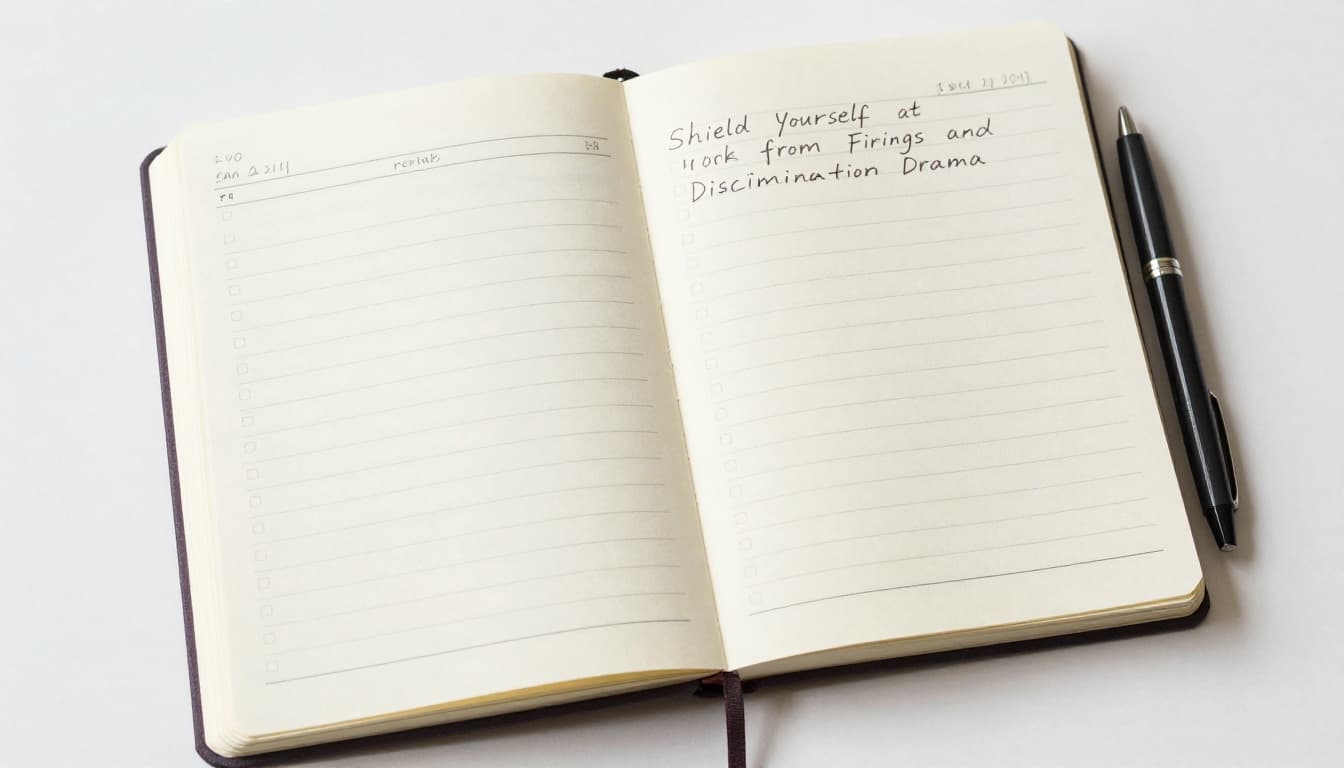 Shield Yourself at
work from Firings and
Discimination Drama